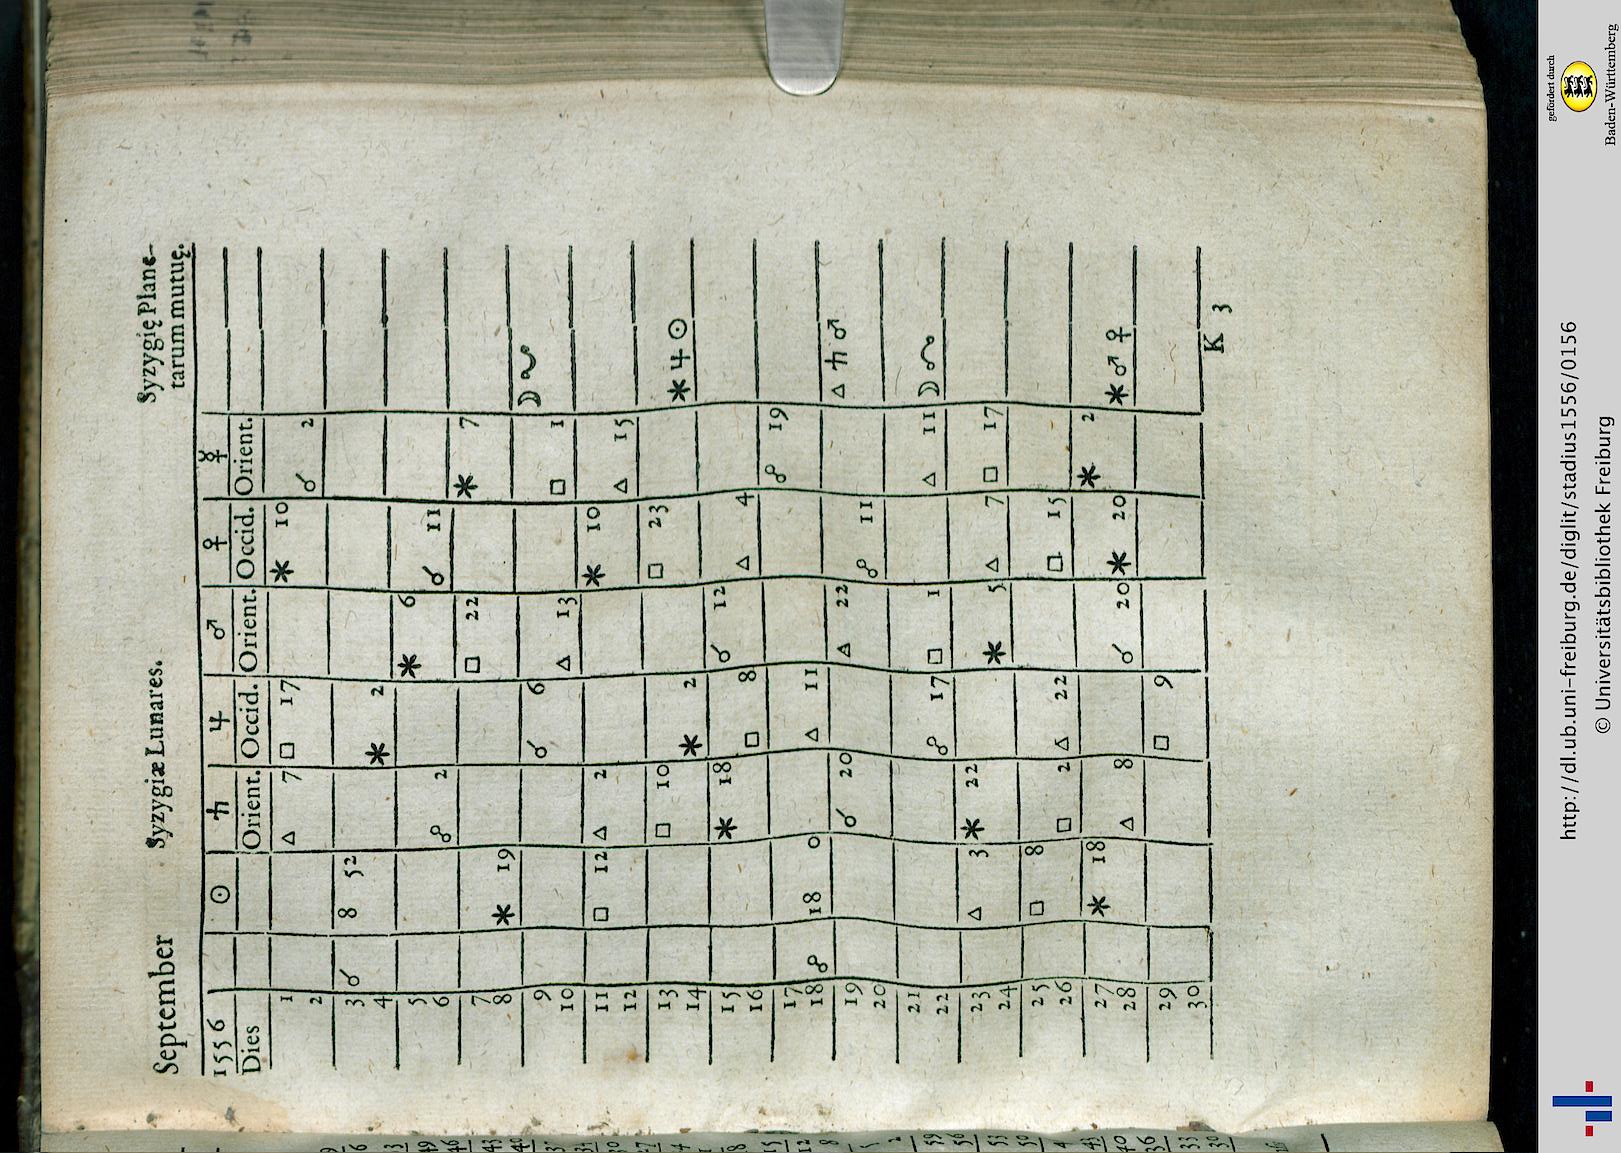 September Syzygiæ Lunares. Syzygię Plane-
tarum mutuę.
1556 ☉ ♄ ♃ ♂ ♀ ☿
Dies Orient. Occid. Orient. Occid. Orient.
1 △ 7 □ 17 ✶ 10
2 ☌ 2
3 ☌ 8 52
4 ✶ 2
5 ✶ 6
6 ☍ 2 ☌ 11
7 □ 22 ✶ 7
8 ✶ 19
9 ☌ 6 ☽ ☋
10 △ 13 □ 1
11 □ 12 △ 2 ✶ 10
12 △ 15
13 □ 10 □ 23
14 ✶ 2 ✶ ♃ ☉
15 ✶ 18 ☌ 12
16 □ 8 △ 4
17 ☍ 19
18 ☍ 18 0 △ 11
19 ☌ 20 △ 22 △ ♄ ♂
20 ☍ 11
21
22 ☍ 17 □ 1 △ 11 ☽ ☊
23 △ 3 ✶ 22
24 ✶ 5 △ 7 □ 17
25 □ 8
26 □ 2 △ 22 □ 15
27 ✶ 18 ✶ 2
28 △ 8 ☌ 20 ✶ 20 ✶ ♂ ♀
29 □ 9
30
K 3
http://dl.ub.uni-freiburg.de/diglit/stadius1556/0156
© Universitätsbibliothek Freiburg
gefördert durch
Baden-Württemberg